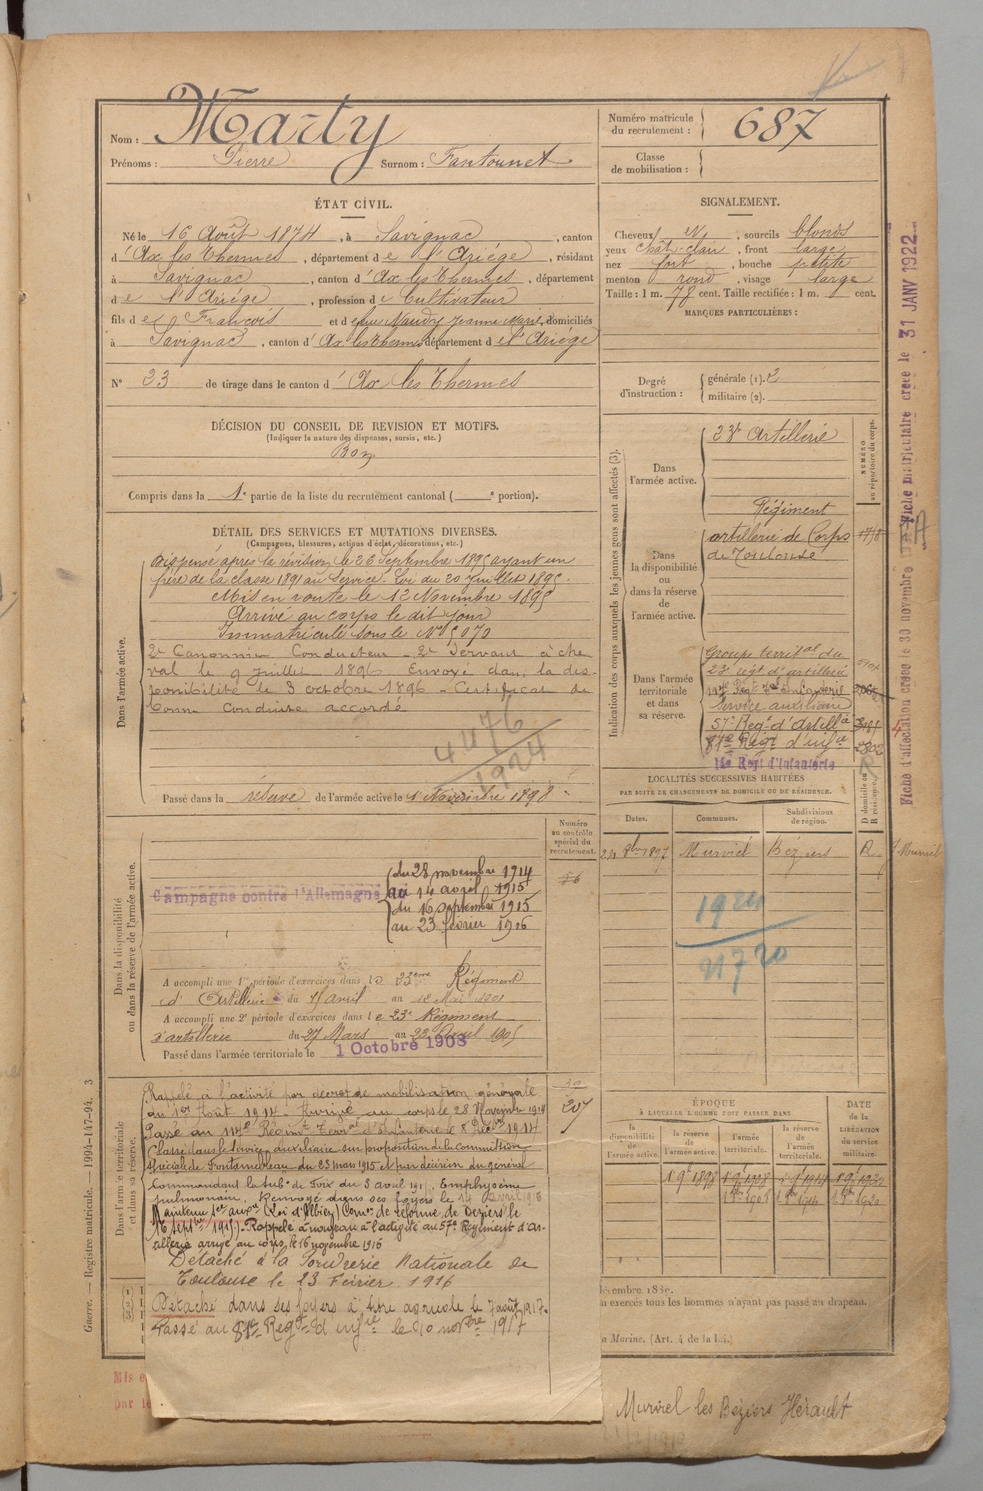 Nom : Marty
Prénoms : Pierre Surnom : Fantounet
Numéro matricule du recrutement : 687
Classe de mobilisation :
ÉTAT CIVIL.
Né le 16 Août 1874, à Savignac, canton
d'Ax les Thermes, département de l'Ariège, résidant
à Savignac, canton d'Ax les Thermes, département
de l'Ariège, profession de Cultivateur
fils de François et de feue Naudy Jeanne Marie, domiciliés
à Savignac, canton d'Ax les Thermes département de l'Ariège
N° 23 de tirage dans le canton d'Ax les Thermes
SIGNALEMENT.
Cheveux N, sourcils blonds
yeux chât-clair, front large
nez fort, bouche petite
menton rond, visage large
Taille : 1 m. 78 cent. Taille rectifiée : 1 m. 7 cent.
MARQUES PARTICULIÈRES :
Degré d'instruction : générale (1). 2
militaire (2).
DÉCISION DU CONSEIL DE REVISION ET MOTIFS.
(Indiquer la nature des dispenses, sursis, etc.)
Bon
Compris dans la 1e partie de la liste du recrutement cantonal ( e portion).
DÉTAIL DES SERVICES ET MUTATIONS DIVERSES.
(Campagnes, blessures, actions d'éclat, décorations, etc.)
Dans l'armée active.
Dispensé après la révision le 26 Septembre 1895 ayant un
frère de la classe 1891 au Service. Loi du 20 Juillet 1895.
Mis en route le 12 Novembre 1895
Arrivé au corps le dit jour
Immatriculé sous le N° 5070
2e Canonnier Conducteur - 2e Servant à che
val le 9 juillet 1896 Envoyé dans la dis-
ponibilité le 3 octobre 1896 - Certificat de
bonne Conduite accordé
4476
1924
Passé dans la réserve de l'armée active le 1 Novembre 1898
Indication des corps auxquels les jeunes gens sont affectés (3).
NUMÉRO au répertoire du corps.
Dans l'armée active.
23e Artillerie
Dans la disponibilité ou dans la réserve de l'armée active.
Régiment
artillerie de Corps
de Toulouse
Dans l'armée territoriale et dans sa réserve.
Groupe territal du
23e régt d'artillerie
Service auxiliaire
57e Regt d'Artille
81e Régt d'infie
Regt d'Infanterie
LOCALITÉS SUCCESSIVES HABITÉES
PAR SUITE DE CHANGEMENTS DE DOMICILE OU DE RÉSIDENCE.
Dates. Communes. Subdivisions de région. D domicile ou R résidence.
24 8bre 1897 Murviel Béziers R
1924
21720
Dans la disponibilité ou dans la réserve de l'armée active.
Numéro au contrôle spécial du recrutement.
Campagne contre l'Allemagne
du 28 novembre 1914
au 14 avril 1915
du 16 septembre 1915
au 23 février 1916
A accompli une 1re période d'exercices dans le 23ème Régiment
d'Artillerie du 15 avril au 12 Mai 1901
A accompli une 2e période d'exercices dans le 23e Régiment
d'artillerie du 27 Mars au 23 Avril 1905
Passé dans l'armée territoriale le 1 Octobre 1908
Dans l'armée territoriale et dans sa réserve.
Rappelé à l'activité par décret de mobilisation générale
du 1er Août 1914. Arrivé au corps le 28 Novembre 1914
Passé au 114e Régimt Terral d'Infanterie le 8 Décbre 1914
Classé dans le service auxiliaire sur proposition de la commission
spéciale de Fontainebleau du 23 mars 1915 et par décision du général
commandant la Sub° de Foix du 3 avril 1915. Emphysème
pulmonaire. Renvoyé dans ses foyers le 14 avril 1915
Maintenu ser. auxre (Loi Dalbiez) Comon de réforme de Béziers le
16 septbre 1915. Rappelé à nouveau à l'activité au 57e Régiment d'Ar-
tillerie arrivé au corps le 16 novembre 1916
Détaché à la Poudrerie Nationale de
Toulouse le 23 Février 1916
Détaché dans ses foyers à titre agricole le 7 août 1917.
Passé au 81e Regt d'infie le 10 novbre 1917
207
ÉPOQUE
À LAQUELLE L'HOMME DOIT PASSER DANS
la disponibilité de l'armée active. la réserve de l'armée active. l'armée territoriale. la réserve de l'armée territoriale.
DATE de la LIBÉRATION du service militaire.
1 9bre 1898
cembre 1889.
u exercés tous les hommes n'ayant pas passé au drapeau.
a Marine. (Art. 4 de la Loi.)
Murviel les Béziers Hérault
Guerre. — Registre matricule. — 1994-147-94. 3
Fiche matriculaire créée le 31 JANV 1922
Fiche d'affectation créée le 30 novembre
Mis e
par le